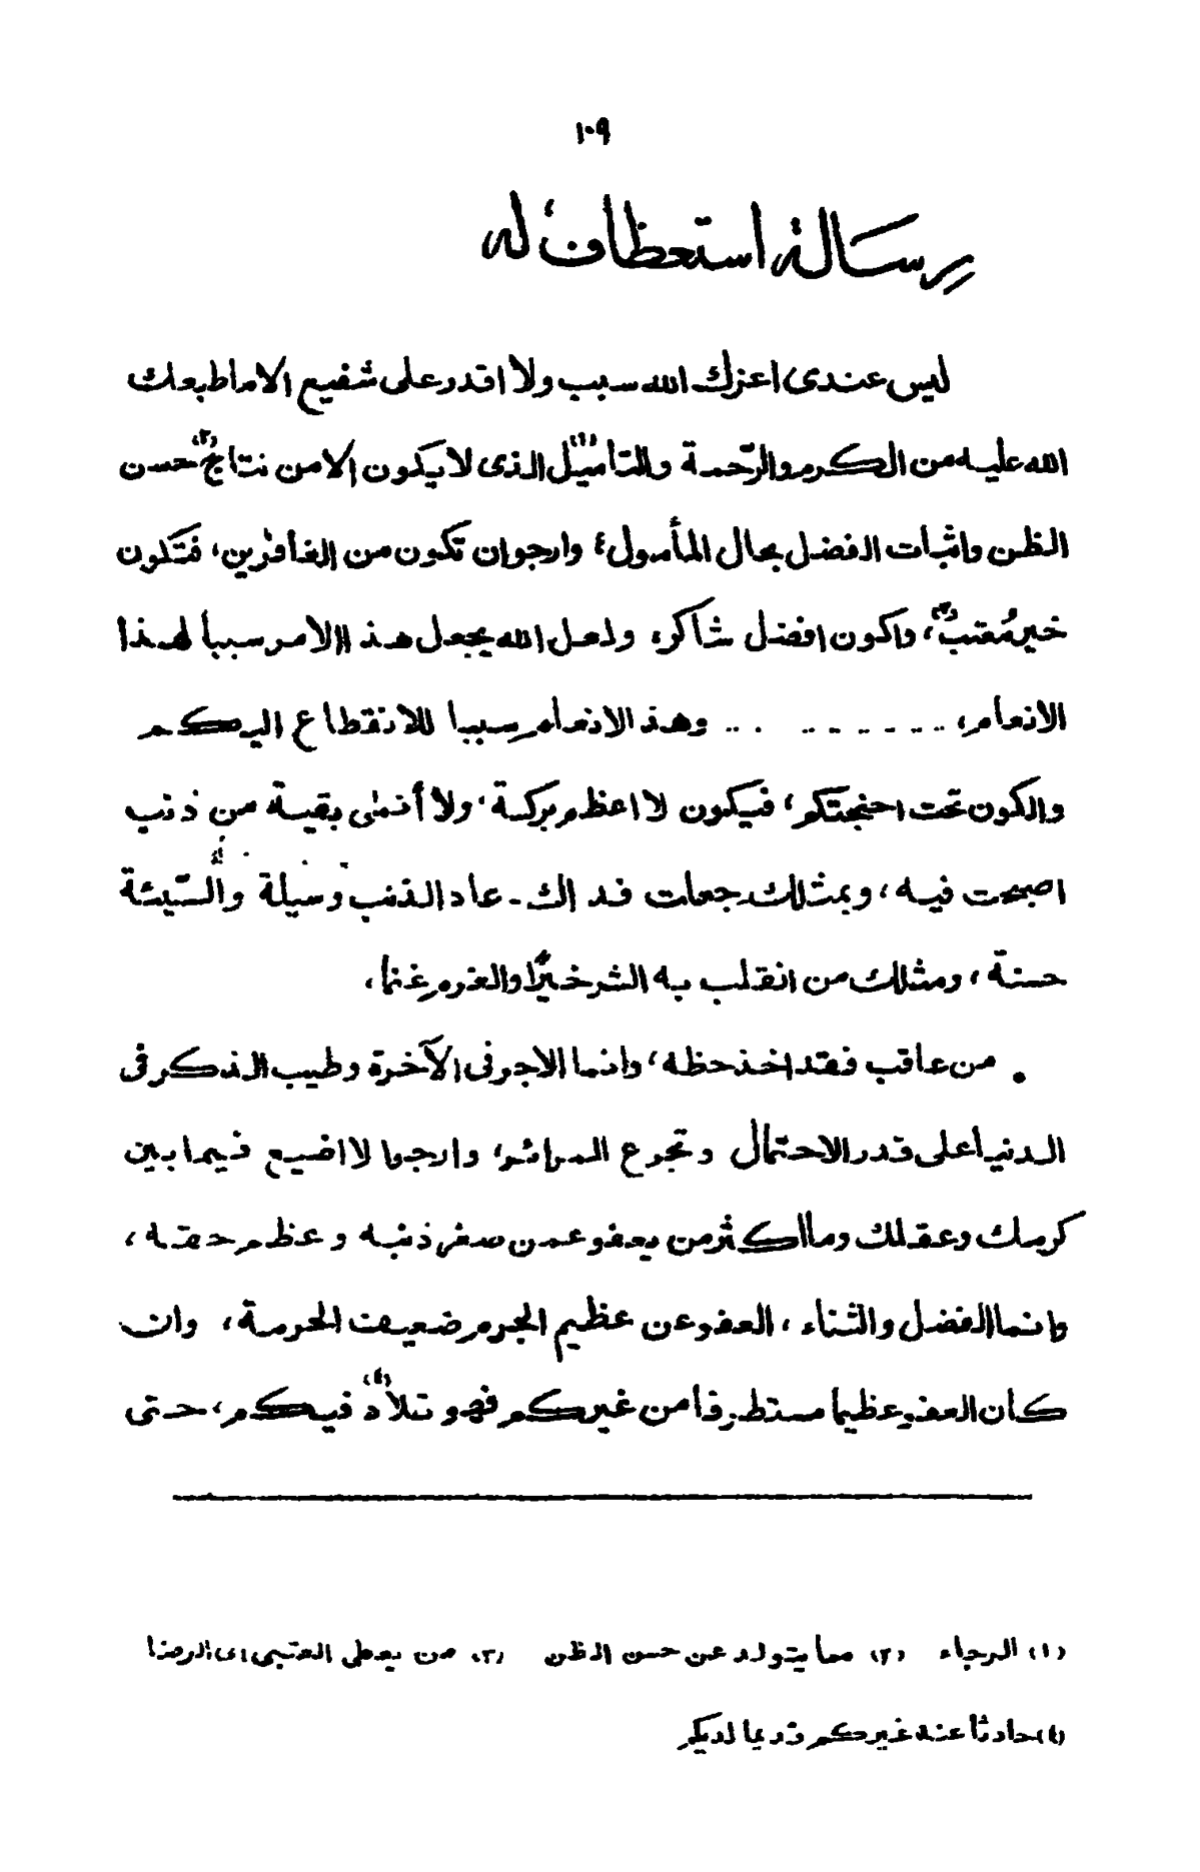 ١٠٩
رسالة استعطاف له
ليس عندى اعزك الله سبب ولا اقدر على شفيع الا ما طبعك
الله عليه من الكرم والرّحمة والتأميل(١) الذى لا يكون الا من نتاج(٢) حسن
الظن واثبات الفضل بحال المأمول، وارجو ان تكون من الغافرين، فتكون
خير مُعتب(٣)، واكون افضل شاكر، ولعل الله يجعل هذ االامر سببا لهذا
الانعام، .. - - - - .. . .. وهذ الانعام سببا للانقطاع اليكم
والكون تحت اجنحتكم، فيكون لا اعظم بركة، ولا أنمى بقية من ذنب
اصبحت فيه، وبمثلك جعلت فداك - عاد الذنب وسيلة والسّيئة
حسنة، ومثلك من انقلب به الشر خيرًا والغرم غنما،
. من عاقب فقد اخذ حظه، وانما الاجر فى الآخرة وطيب الذكر فى
الدنيا على قدر الاحتمال وتجرع المرائر، وارجوا لا اضيع فيما بين
كرمك وعقلك وما اكثر من يعفو عمن صغر ذنبه وعظم حقه،
وانما الفضل والثناء، العفو عن عظيم الجرم ضعيف الحرمة، وان
كان العفو عظيما مستطرفا من غيركم فهو تلاد(٤) فيكم، حتى
(١) الرجاء (٢) مما يتولد عن حسن الظن (٣) من يعطى العتبى اى الرضا
(٤) حادثا عند غيركم قديما لديكم